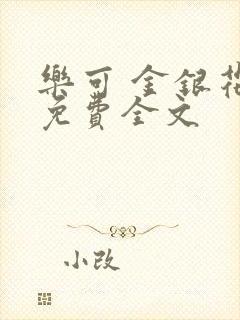 樂可 金銀花
免費全文
小改